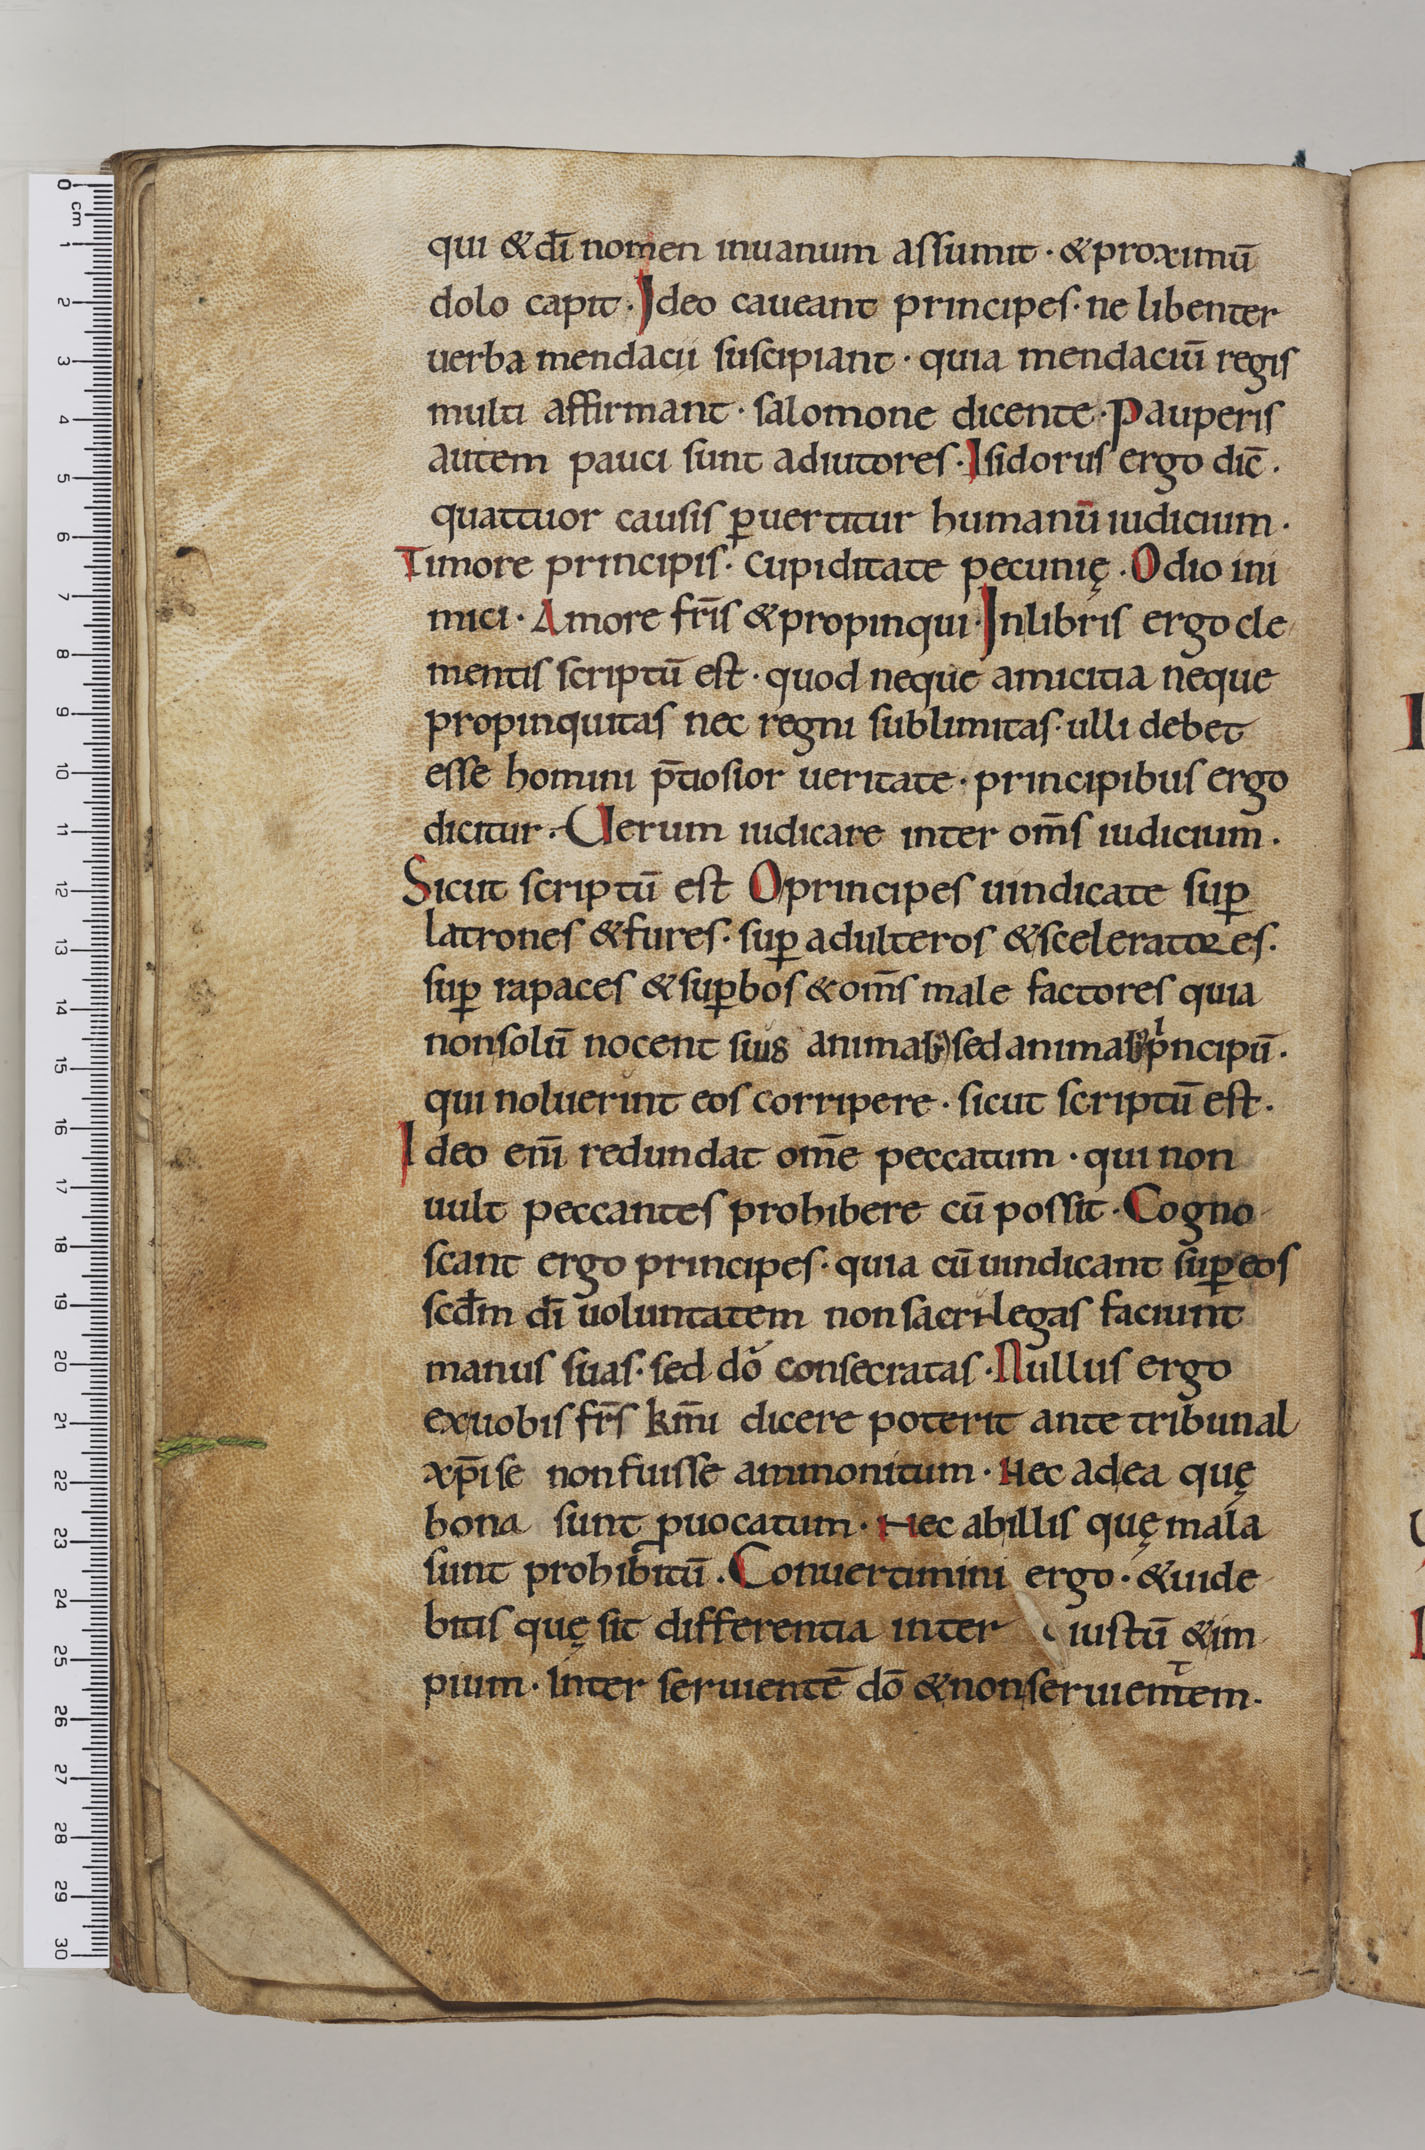 qui & dī nomen inuanum assumit · & proximū
dolo capit · Ideo caueant principes · ne libenter
uerba mendacii suscipiant · quia mendaciū regis
multi affirmant · salomone dicente · Pauperis
autem pauci sunt adiutores · Isidorus ergo dic̄ ·
quattuor causis ꝑuertitur humanū iudicium ·
Timore principis · cupiditate pecunię · Odio ini
mici · Amore fr̄is & propinqui · In libris ergo cle
mentis scriptū est · quod neque amicitia neque
propinquitas nec regni sublimitas · ulli debet
esse homini p̄tiosior ueritate · principibus ergo
dicitur · Uerum iudicare inter om̄s iudicium ·
Sicut scriptū est O principes uindicate suꝑ
latrones & fures · suꝑ adulteros & sceleratores ·
suꝑ rapaces & suꝑbos & om̄s male factores quia
non solū nocent suis animab; sed animab; pͥncipū ·
qui noluerint eos corripere · sicut scriptū est ·
Ideo eni᷑ redundat om̄e peccatum · qui non
uult peccantes prohibere cū possit · Cogno
scant ergo principes · quia cū uindicant suꝑ eos
scd̄m dī uoluntatem non sacrilegas faciunt
manus suas · sed dō consecratas · Nullus ergo
ex uobis fr̄s km̄i dicere poterit ante tribunal
xp̄i se non fuisse ammonitum · Nec ad ea quę
bona sunt ꝓuocatum · Nec ab illis quę mala
sunt prohibitū · Conuertimini ergo · & uide
bitis quę sit differentia inter iustū & im
pium · Inter seruientē dō & non seruientem ·
0 cm
1
2
3
4
5
6
7
8
9
10
11
12
13
14
15
16
17
18
19
20
21
22
23
24
25
26
27
28
29
30